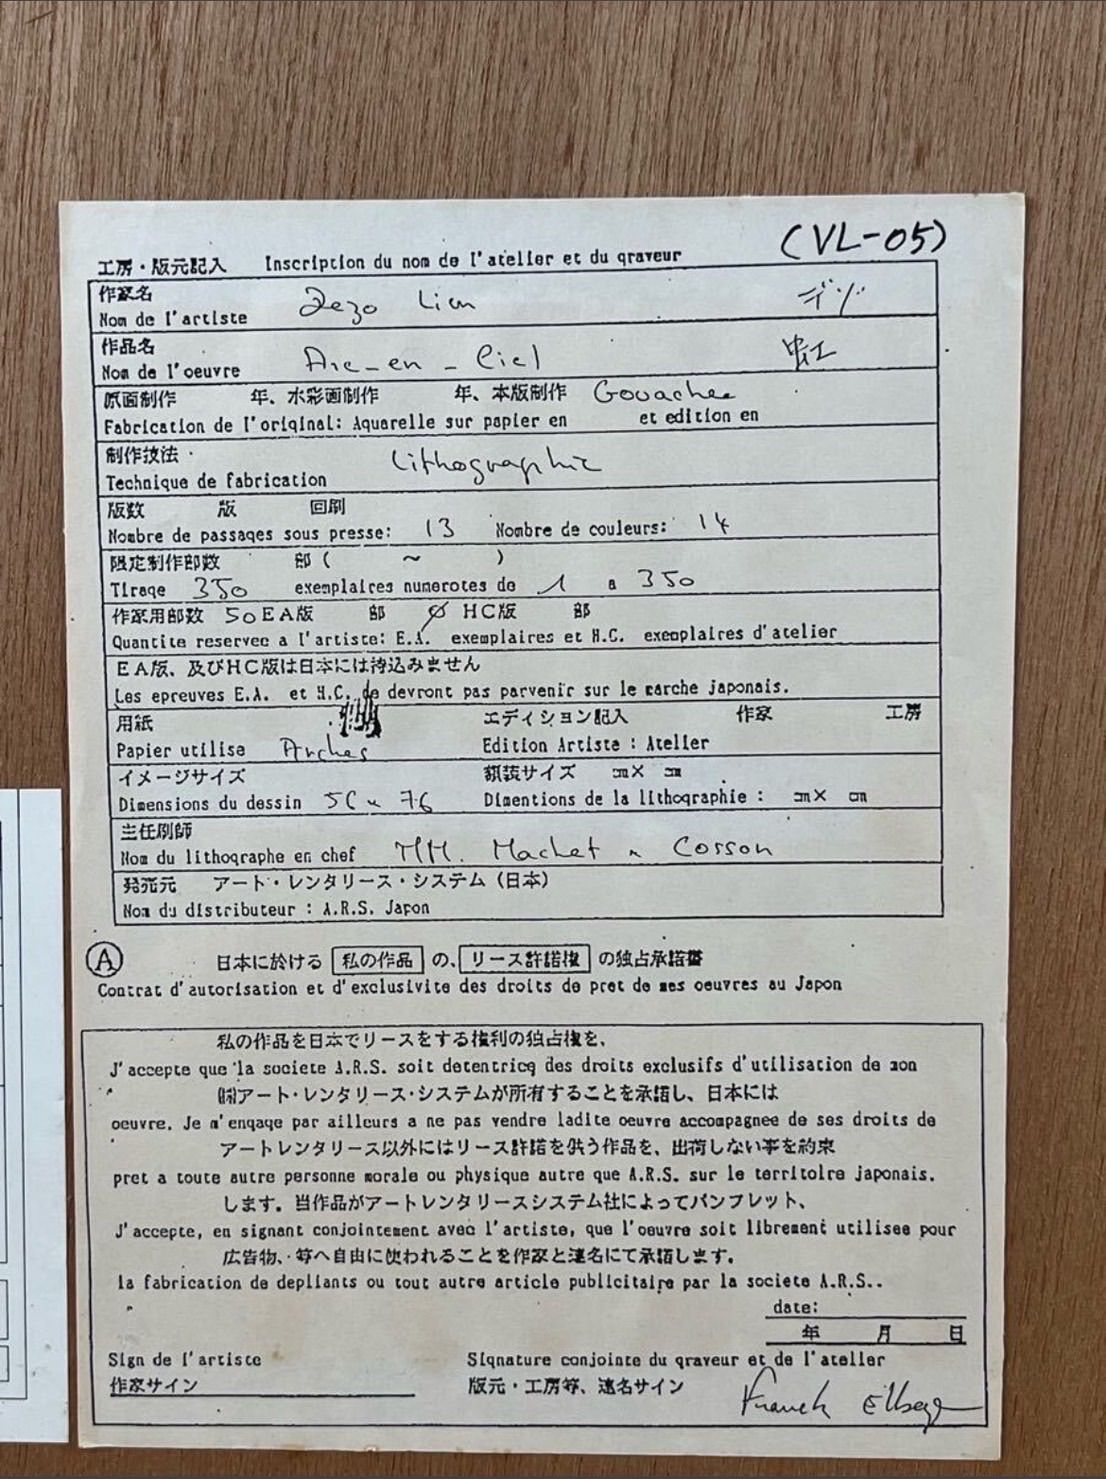 (VL-05)
工房・版元記入 Inscription du nom de l'atelier et du graveur
作家名
Nom de l'artiste デゾ
作品名
Nom de l'oeuvre Arc-en-Ciel 虹
原画制作 年、水彩画制作 年、本版制作 Gouache
Fabrication de l'original: Aquarelle sur papier en et edition en
制作技法
Technique de fabrication Lithographie
版数 版 回刷
Nombre de passages sous presse: 13 Nombre de couleurs: 14
限定制作部数 部( ~ )
Tirage 350 exemplaires numerotes de 1 a 350
作家用部数 50 EA版 部 Ø HC版 部
Quantite reservee a l'artiste: E.A. exemplaires et H.C. exemplaires d'atelier
EA版、及びHC版は日本には持込みません
Les epreuves E.A. et H.C. de devront pas parvenir sur le marche japonais.
用紙 エディション記入 作家 工房
Papier utilise Arches Edition Artiste : Atelier
イメージサイズ 額装サイズ cm× cm
Dimensions du dessin 56 x 76 Dimentions de la lithographie : cm× cm
主任刷師
Nom du lithographe en chef MM. Machet Corson
発売元 アート・レンタリース・システム(日本)
Nom du distributeur : A.R.S. Japon
Ⓐ 日本に於ける 私の作品 の、リース許諾権 の独占承諾書
Contrat d'autorisation et d'exclusivite des droits de pret de mes oeuvres au Japon
私の作品を日本でリースをする権利の独占権を、
J'accepte que la societe A.R.S. soit detentrice des droits exclusifs d'utilisation de mon
㈱アート・レンタリース・システムが所有することを承諾し、日本には
oeuvre. Je m'engage par ailleurs a ne pas vendre ladite oeuvre accompagnee de ses droits de
アートレンタリース以外にはリース許諾を供う作品を、出荷しない事を約束
pret a toute autre personne morale ou physique autre que A.R.S. sur le territoire japonais.
します。当作品がアートレンタリースシステム社によってパンフレット、
J'accepte, en signant conjointement avec l'artiste, que l'oeuvre soit librement utilisee pour
広告物、等へ自由に使われることを作家と連名にて承諾します。
la fabrication de depliants ou tout autre article publicitaire par la societe A.R.S..
date:
年 月 日
Sign de l'artiste Signature conjointe du graveur et de l'atelier
作家サイン 版元・工房等、連名サイン Franck